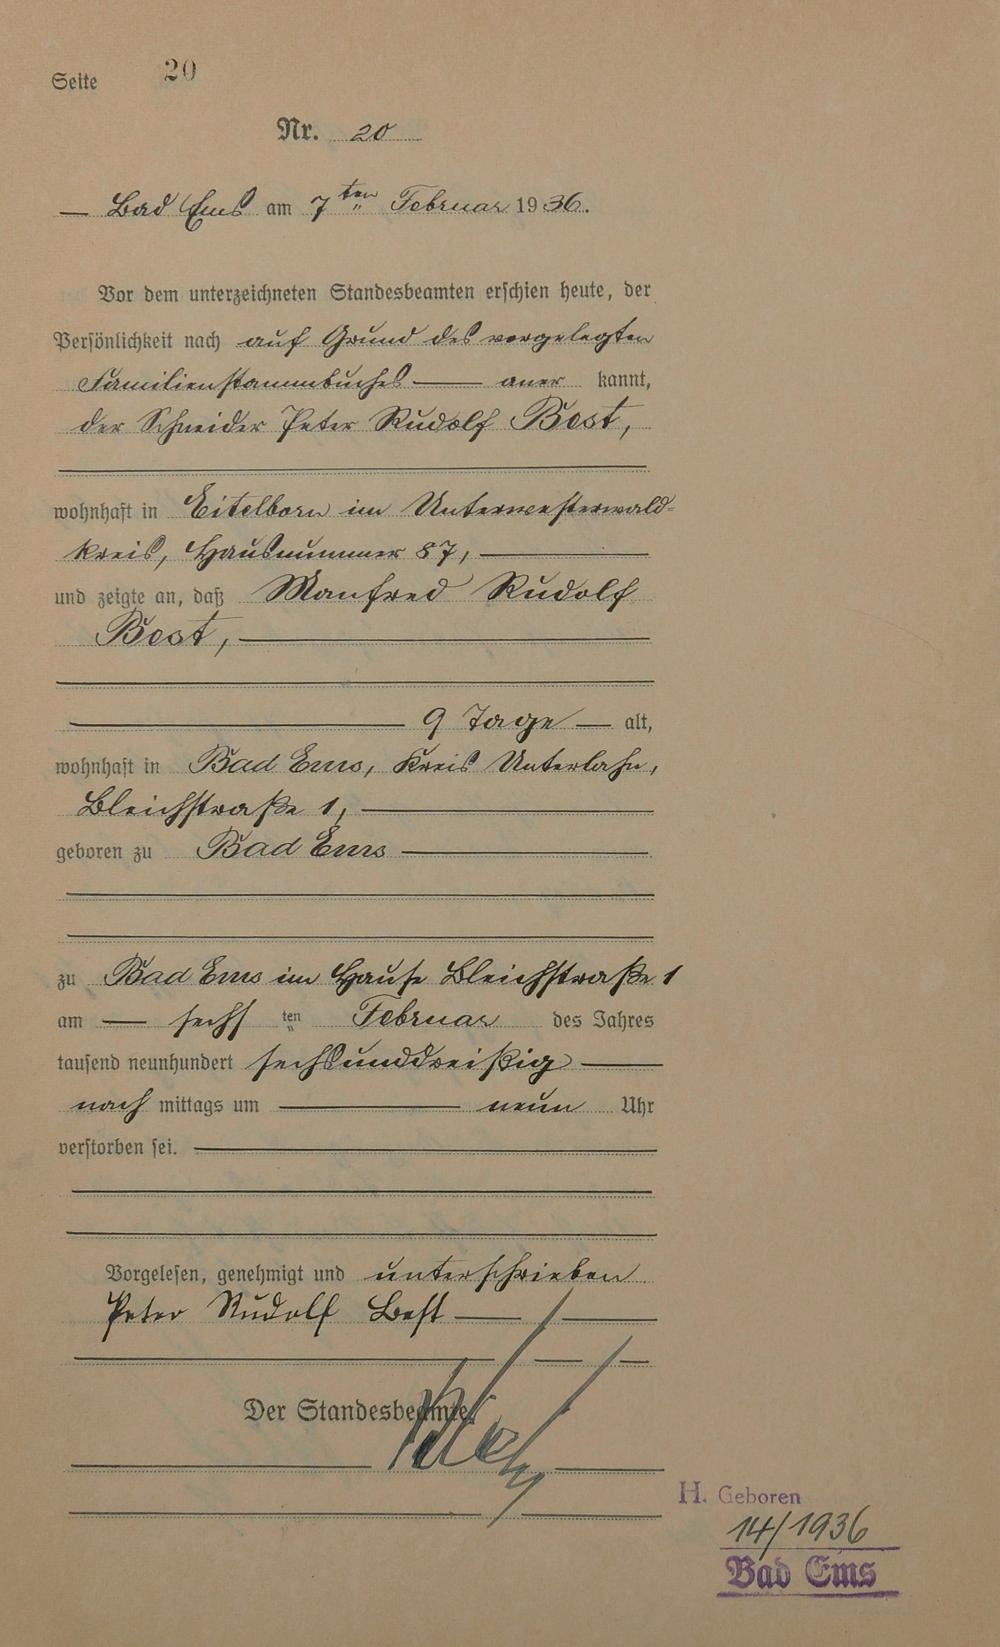 Seite 20
Nr. 20
Bad Ems am 7ten Februar 1936.
Vor dem unterzeichneten Standesbeamten erschien heute, der
Persönlichkeit nach auf Grund des vorgelegten
Familienstammbuches — aner kannt,
der Schneider Peter Rudolf Best,
wohnhaft in Eitelborn im Unterwesterwald-
kreis, Hausnummer 87,
und zeigte an, daß Manfred Rudolf
Best,
9 Tage — alt,
wohnhaft in Bad Ems, Kreis Unterlahn,
Bleichstraße 1,
geboren zu Bad Ems
zu Bad Ems im Hause Bleichstraße 1
am — sechsten Februar des Jahres
tausend neunhundert sechsunddreißig
nach mittags um — neun Uhr
verstorben sei.
Vorgelesen, genehmigt und unterschrieben
Peter Rudolf Best
Der Standesbeamte.
H. Geboren
14/1936
Bad Ems